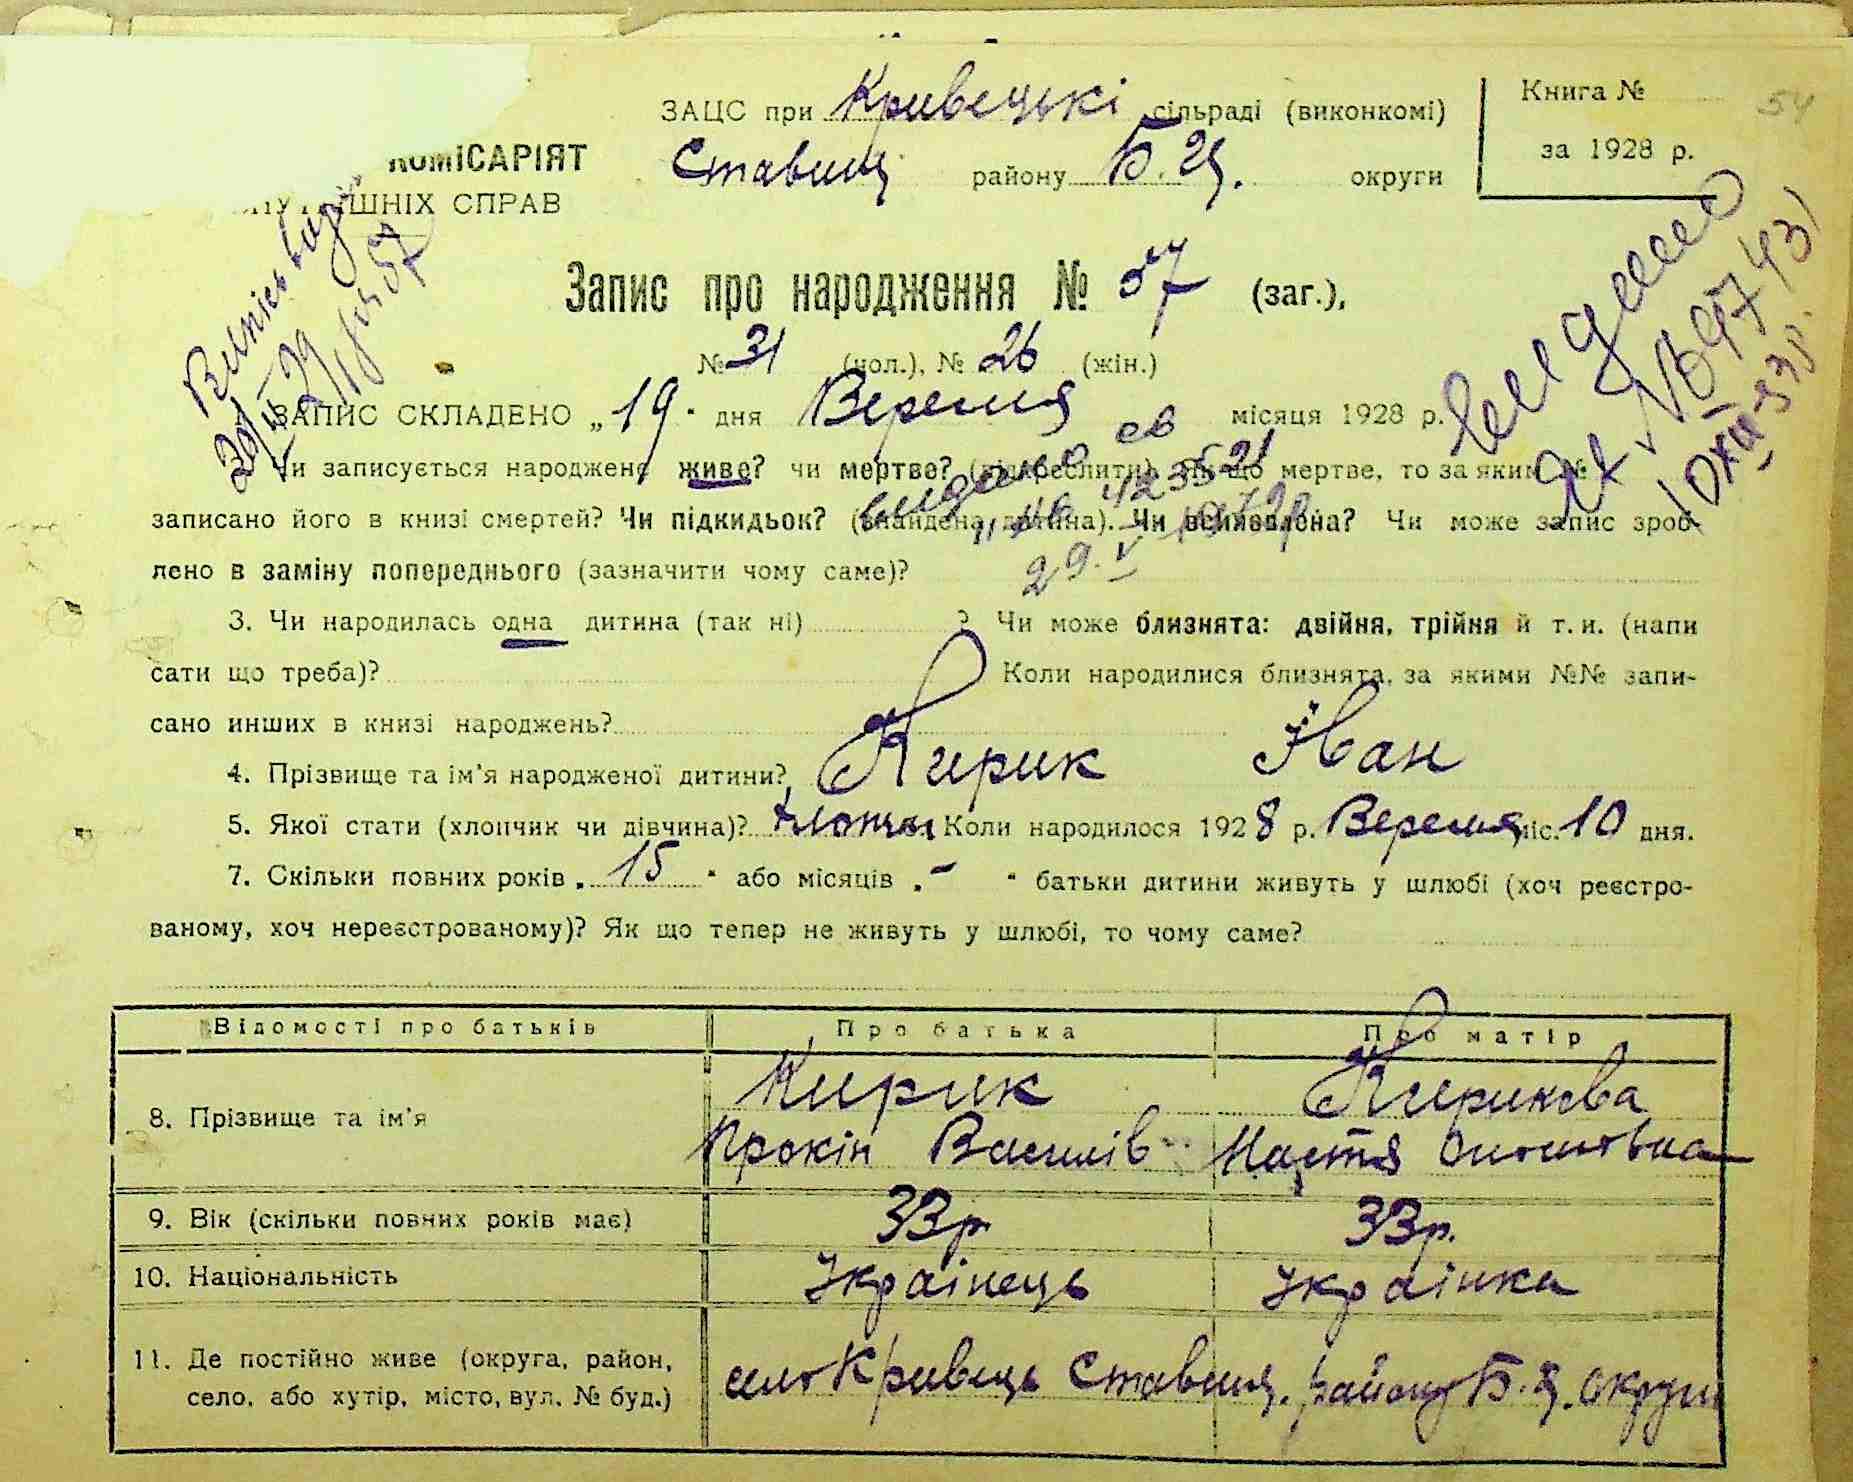 ЗАЦС при Кривецькі сільраді (виконкомі)
Книга №
54
КОМІСАРІЯТ
Ставищ району Б.Ц. округи
за 1928 р.
ШНІХ СПРАВ
Запис про народження № 57 (заг.),
№ 31 (чол.), № 26 (жін.)
ЗАПИС СКЛАДЕНО „19" дня Вересня місяця 1928 р.
Чи записується народжене живе? чи мертве? (підкреслити). Як що мертве, то за яким №
записано його в книзі смертей? Чи підкидьок? (знайдена дитина). Чи всиновлена? Чи може запис зроб-
лено в заміну попереднього (зазначити чому саме)?
видано св
423521
29.V
3. Чи народилась одна дитина (так ні) ? Чи може близнята: двійня, трійня й т. и. (напи
сати що треба)? Коли народилися близнята, за якими №№ запи-
сано инших в книзі народжень?
4. Прізвище та ім'я народженої дитини? Кирик Іван
5. Якої стати (хлопчик чи дівчина)? хлопчи Коли народилося 1928 р. Вересня міс. 10 дня.
7. Скільки повних років „15" або місяців „-" батьки дитини живуть у шлюбі (хоч реєстро-
ваному, хоч нереєстрованому)? Як що тепер не живуть у шлюбі, то чому саме?
Відомості про батьків Про батька Про матір
8. Прізвище та ім'я Кирик Кирикова
Прокіп Василів Настя
9. Вік (скільки повних років має) 33р 33р.
10. Національність Українець Українка
11. Де постійно живе (округа, район,
село, або хутір, місто, вул. № буд.) село Кривець Ставищ. району Б.Ц. округи